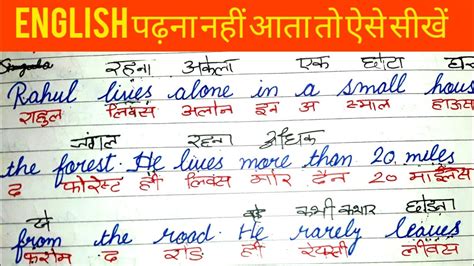 ENGLISH पढ़ना नहीं आता तो ऐसे सीखें
रहना अकेला एक छोटा
Rahul lives alone in a small hous
राहुल लिवस अलोन इन अ स्माल हाऊस
जंगल रहना अधिक
the forest. He lives more than 20 miles
द फोरेस्ट ही लिवस मोर दैन 20 माइलस
से कभी कभार छोड़ना
from the road. He rarely leaves
फरोम द रोड ही लीवस